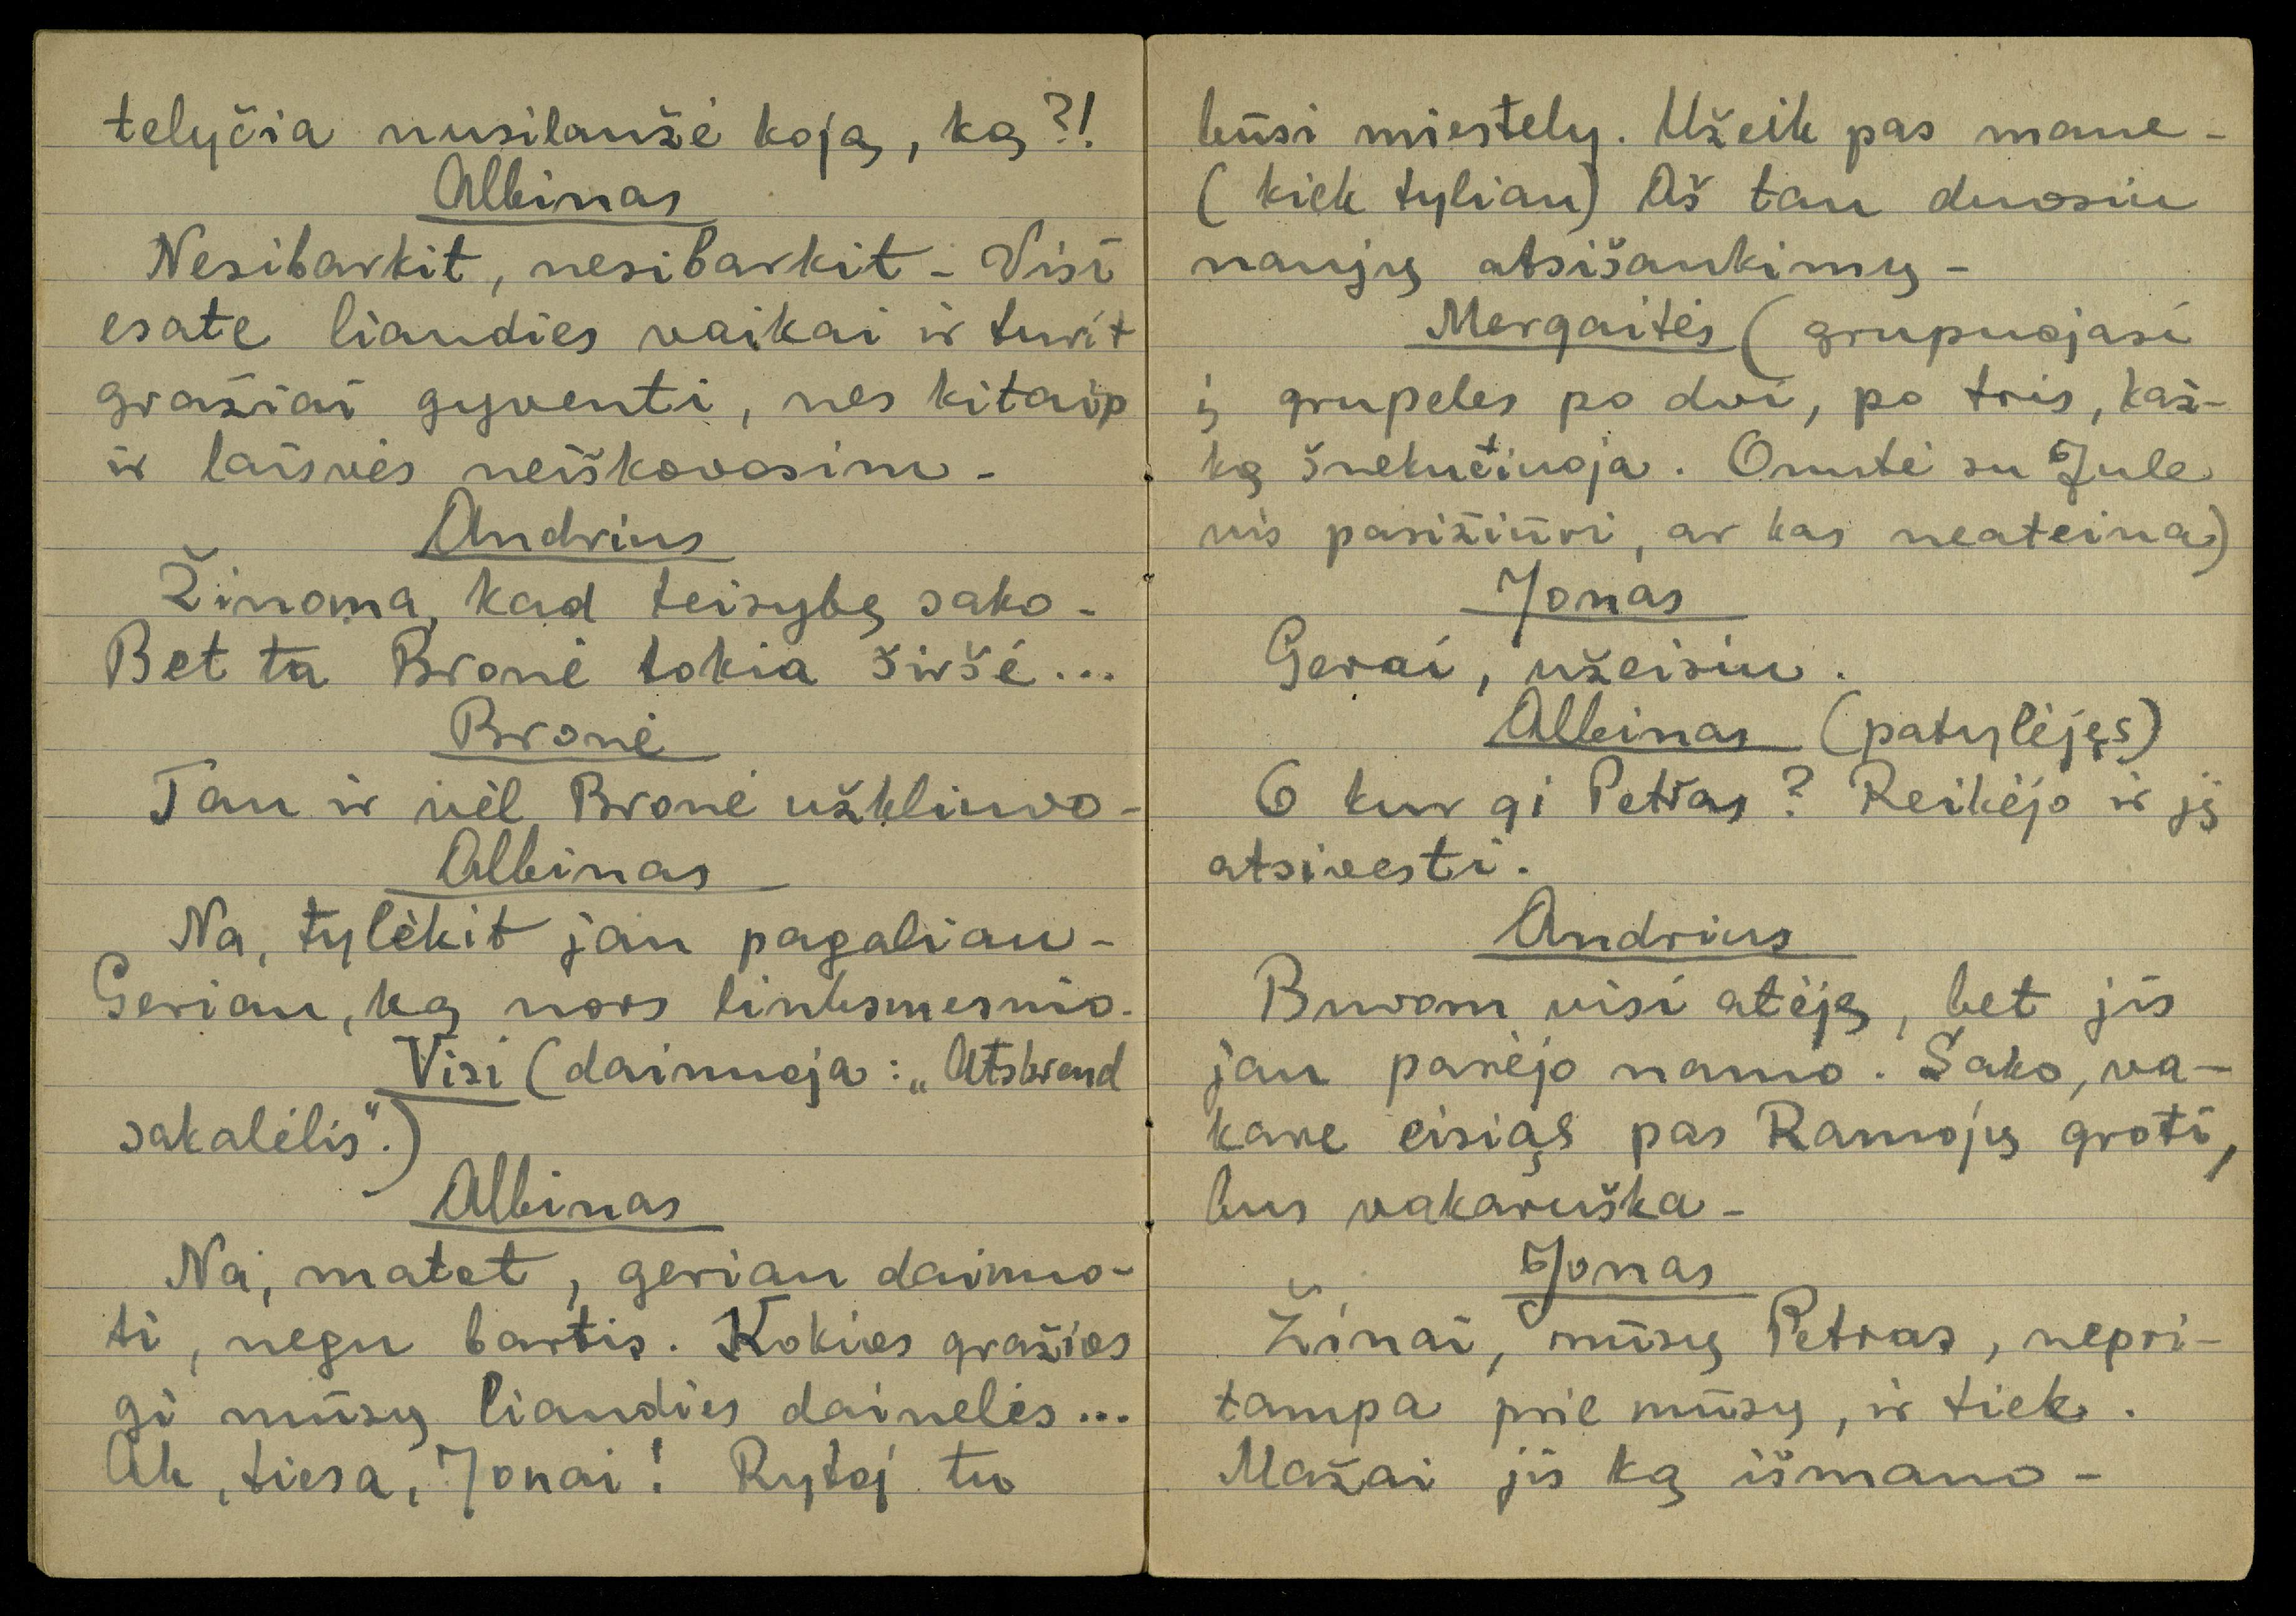 telyčia nusilaužė koją, ką?!
Albinas
Nesibarkit, nesibarkit - Visi
esate liaudies vaikai ir turit
gražiai gyventi, nes kitaip
ir laisvės neiškovosim -
Andrius
Žinoma, kad teisybę sako -
Bet ta Bronė tokia širšė...
Bronė
Tau ir vėl Bronė užkliuvo -
Albinas
Na, tylėkit jau pagaliau -
Geriau, ką nors linksmesnio.
Visi (dainuoja: „Atskrend
sakalėlis“.)
Albinas
Na, matet, geriau dainuo-
ti, negu bartis. Kokios gražios
gi mūsų liaudies dainelės...
Ak, tiesa, Jonai! Rytoj tu
būsi miestely. Užeik pas mane -
(kiek tyliau) Aš tau duosiu
naujų atsišaukimų -
Mergaitės (grupuojasi
į grupeles po dvi, po tris, kaž-
ką šnekučiuoja. Onutė su Jule
vis pasižiūri, ar kas neateina)
Jonas
Gerai, užeisiu.
Albinas (patylėjęs)
O kur gi Petras? Reikėjo ir jį
atsivesti.
Andrius
Buvom visi atėję, bet jis
jau parėjo namo. Sako, va-
kare eisiąs pas Ramojų groti,
bus vakaruška -
Jonas
Žinai, mūsų Petras, nepri-
tampa prie mūsų, ir tiek.
Mažai jis ką išmano -